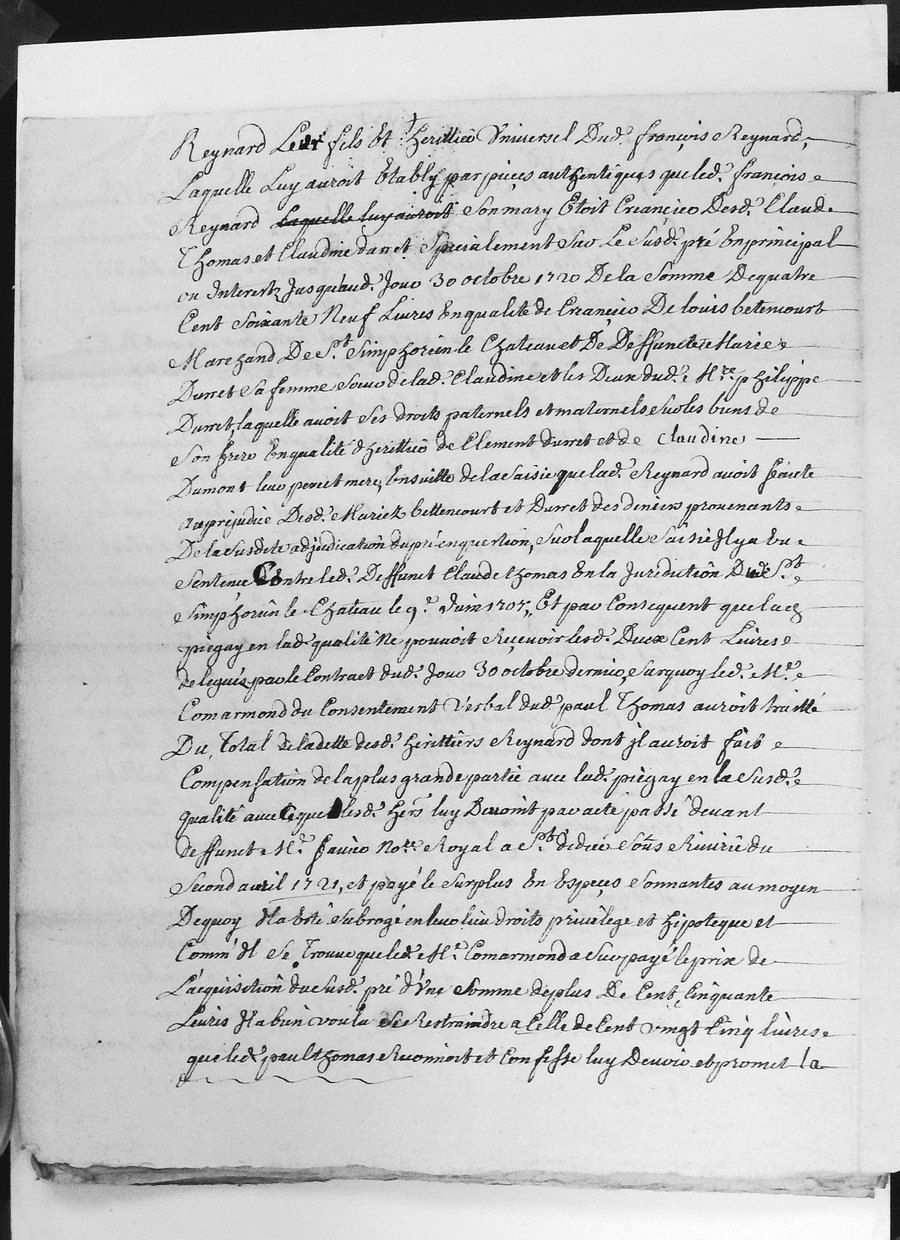 Reynard Leur fils Et herittier Universel Dud. françois Reynard,
Laquelle Luy auroit Etably par pieces authentiques que led. françois
Reynard Laquelle luy auroit Son mary Etoit Creancier Desd. Claude
Thomas et Claudine durret Specialement Sur Le Susd. pré En principal
ou Interestz Jusqu'aud. Jour 30 octobre 1720 De la Somme De quatre
Cent Soixante Neuf Livres En qualité de Creancier De louis betencourt
Marchand De St. Simphorien le Chateau et De Deffuncte Marie
Durret Sa femme Soeur de lad. Claudine et les Deux dud. Mre. philippe
Durret, laquelle avoit Ses droits paternels et maternels Sur les biens de
Son frere En qualité d'herittier de Clement durret et de Claudine
Dumont leur pere et mere, Ensuitte de la Saisie que lad. Reynard avoit faicte
au prejudice Desd. Mariez bettencourt et Durret des deniers provenants
De la Susdite adjudication du pré en question, Sur laquelle Saisie Il y a Eu
Sentence Contre led. Deffunct Claude thomas En la Juridiction De St.
Simphorien le Chateau le 9e. Juin 1707, Et par Consequent que lad.
piegay en lad. qualité Ne pouvoit Recevoir lesd. Deux Cent Livres
delegués par le Contract dud. Jour 30 octobre dernier, Surquoy led. Me.
Comarmond du Consentement Verbal dud. paul Thomas auroit traitté
Du Total de la dette desd. herittiers Reynard dont jl auroit fait
Compensation de la plus grande partie avec lad. piegay en la Susd.
qualité avec Ce que lesd. hers. luy Devoint par acte passé devant
deffunct Me. Nore. Royal a St. didier Sous Riviere du
Second avril 1721, et payé le Surplus En Especes Sonnantes au moyen
Dequoy Il a Esté Subrogé en leur lieu droits privilege et hipoteque et
Comm' Il Se Trouve que led. Me. Comarmond a Surpayé le prix de
L'acquisition du Susd. pré d'Une Somme de plus De Cent Cinquante
Livres Il a bien voulu Se Restraindre a Celle de Cent vingt Cinq livres
que led. paul thomas Reconnoit et Confesse luy Devoir et promet la